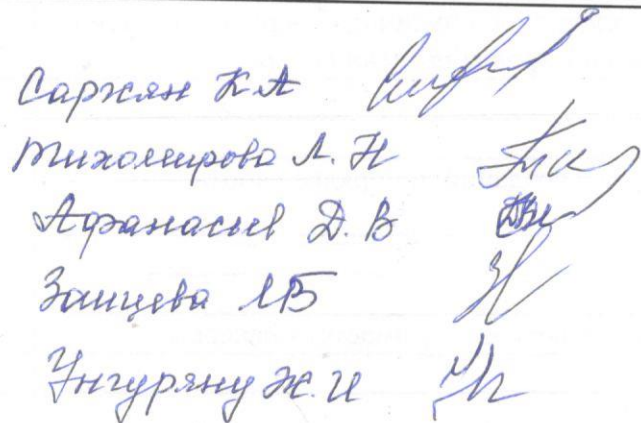 Саржян К.А
Тихомирова Л. Н
Афанасьев Д. В
Зайцева ЛБ
Унгуряну Ж. И